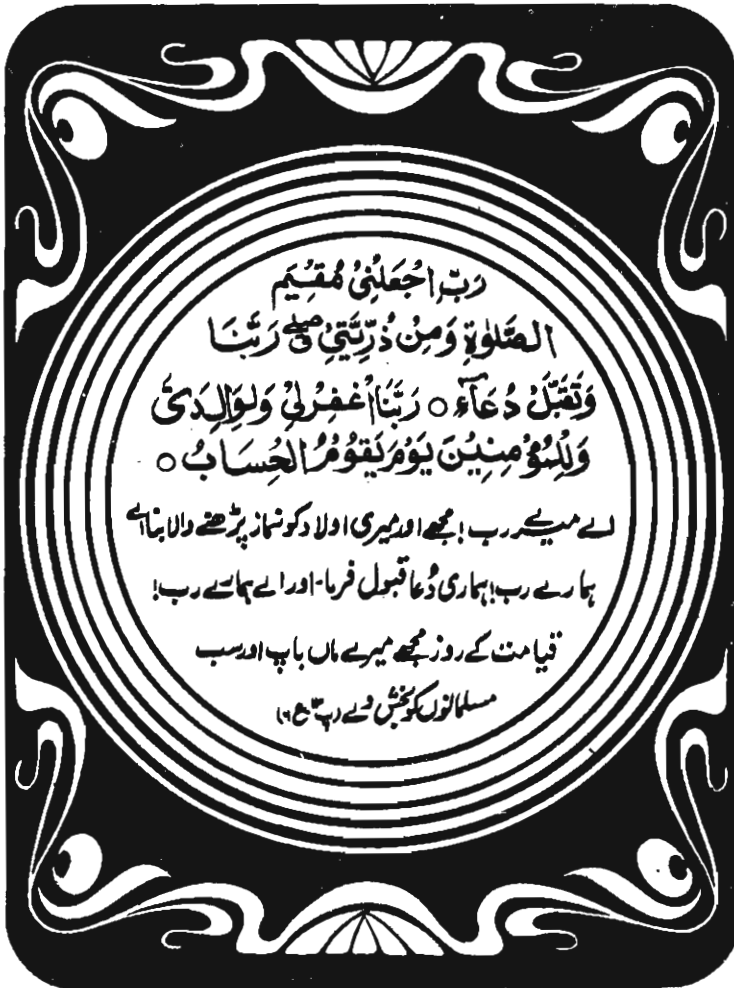 رَبِّ اجْعَلْنِیْ مُقِیْمَ
الصَّلٰوةِ وَمِنْ ذُرِّیَّتِیْ صلے ق رَبَّنَا
وَتَقَبَّلْ دُعَآءِ ○ رَبَّنَا اغْفِرْلِیْ وَلِوَالِدَیَّ
وَلِلْمُؤْمِنِیْنَ یَوْمَ یَقُوْمُ الْحِسَابُ ○
اے میرے رب! مجھے اور میری اولاد کو نماز پڑھنے والا بنا اے
ہمارے رب! ہماری دُعا قبول فرما۔ اور اے ہمارے رب!
قیامت کے روز مجھے میرے ماں باپ اور سب
مسلمانوں کو بخش دے (پ